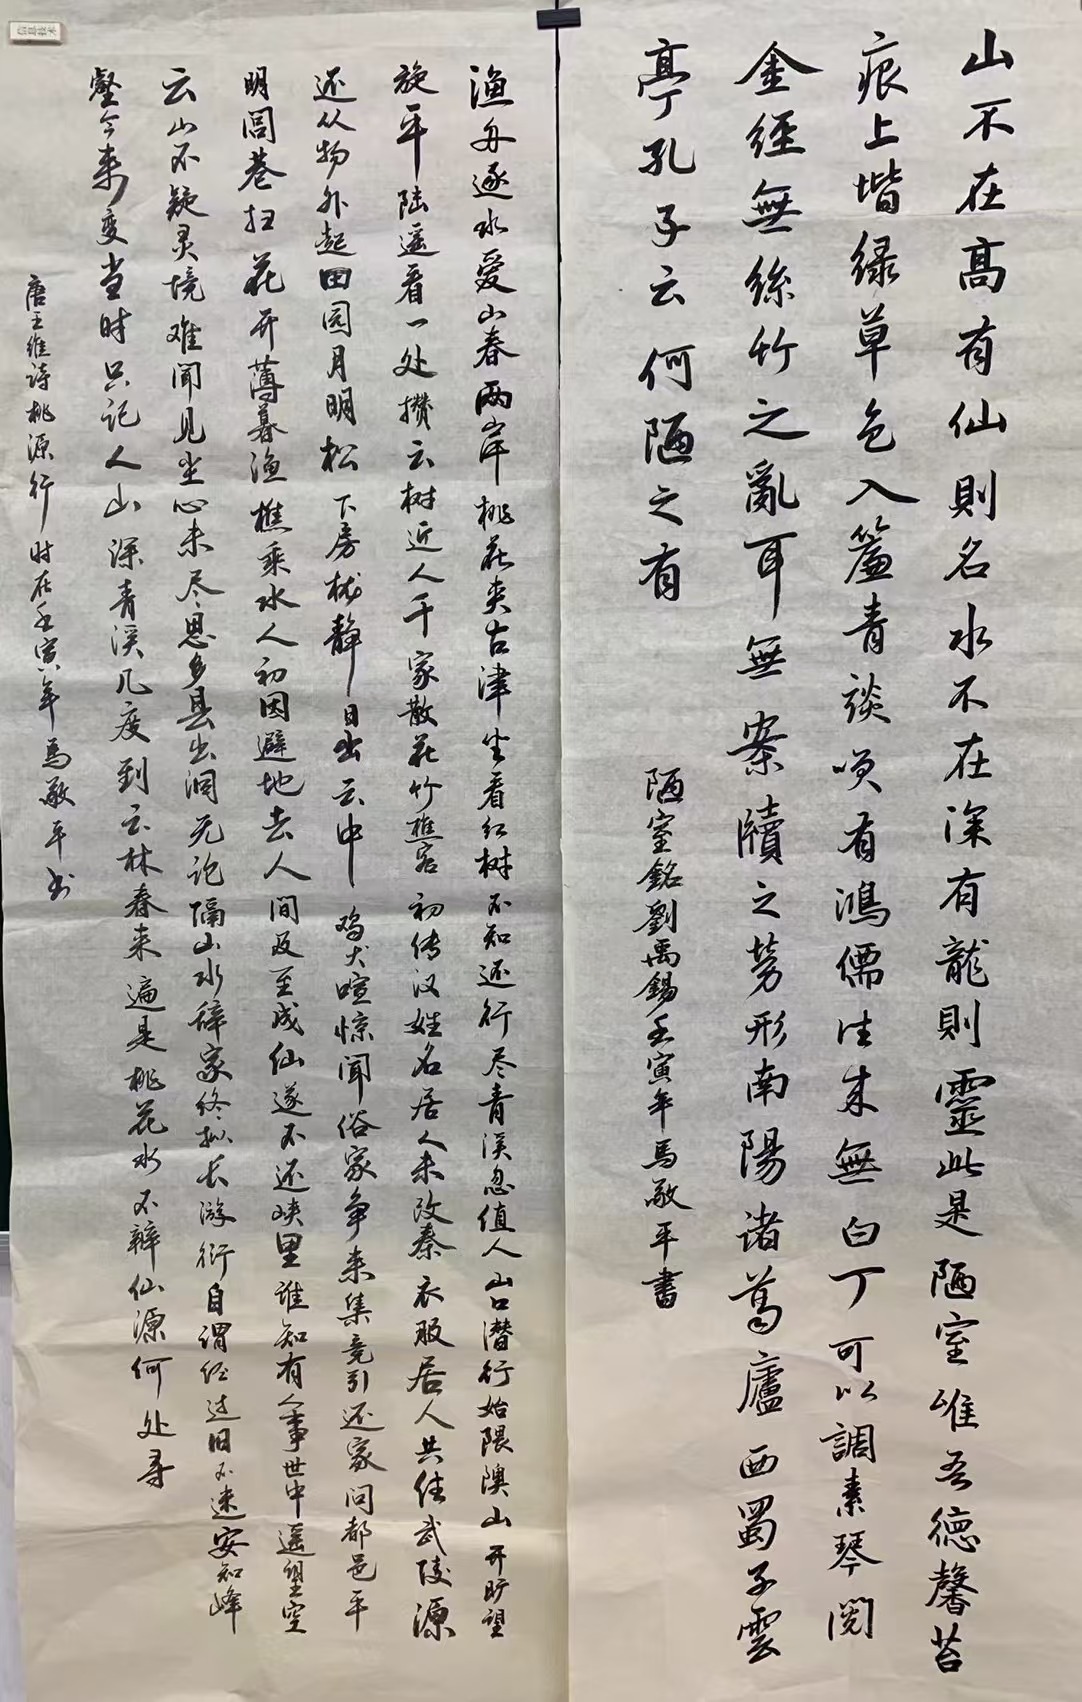 山不在高有仙則名水不在深有龍則靈此是陋室唯吾德馨苔
痕上堦绿草色入簾青談笑有鴻儒往来無白丁可以調素琴閱
金經無絲竹之亂耳無案牘之勞形南陽诸葛廬西蜀子雲
亭孔子云何陋之有
陋室銘劉禹錫壬寅年馬敬平書
渔舟逐水爱山春两岸桃花夹古津坐看红树不知还行尽青溪忽值人山口潜行始隈隩山开旷望
旋平陆遥看一处攒云树近人千家散花竹樵客初传汉姓名居人未改秦衣服居人共住武陵源
还从物外起田园月明松下房栊静日出云中鸡犬喧惊闻俗家争来集竞引还家问都邑平
明闾巷扫花开薄暮渔樵乘水人初因避地去人间及至成仙遂不还峡里谁知有人事世中遥望空
云山不疑灵境难闻见尘心未尽思乡县出洞无论隔山水辞家终拟长游衍自谓经过旧不迷安知峰
壑今来变当时只记入山深青溪几度到云林春来遍是桃花水不辨仙源何处寻
唐王维诗桃源行时在壬寅年马敬平书